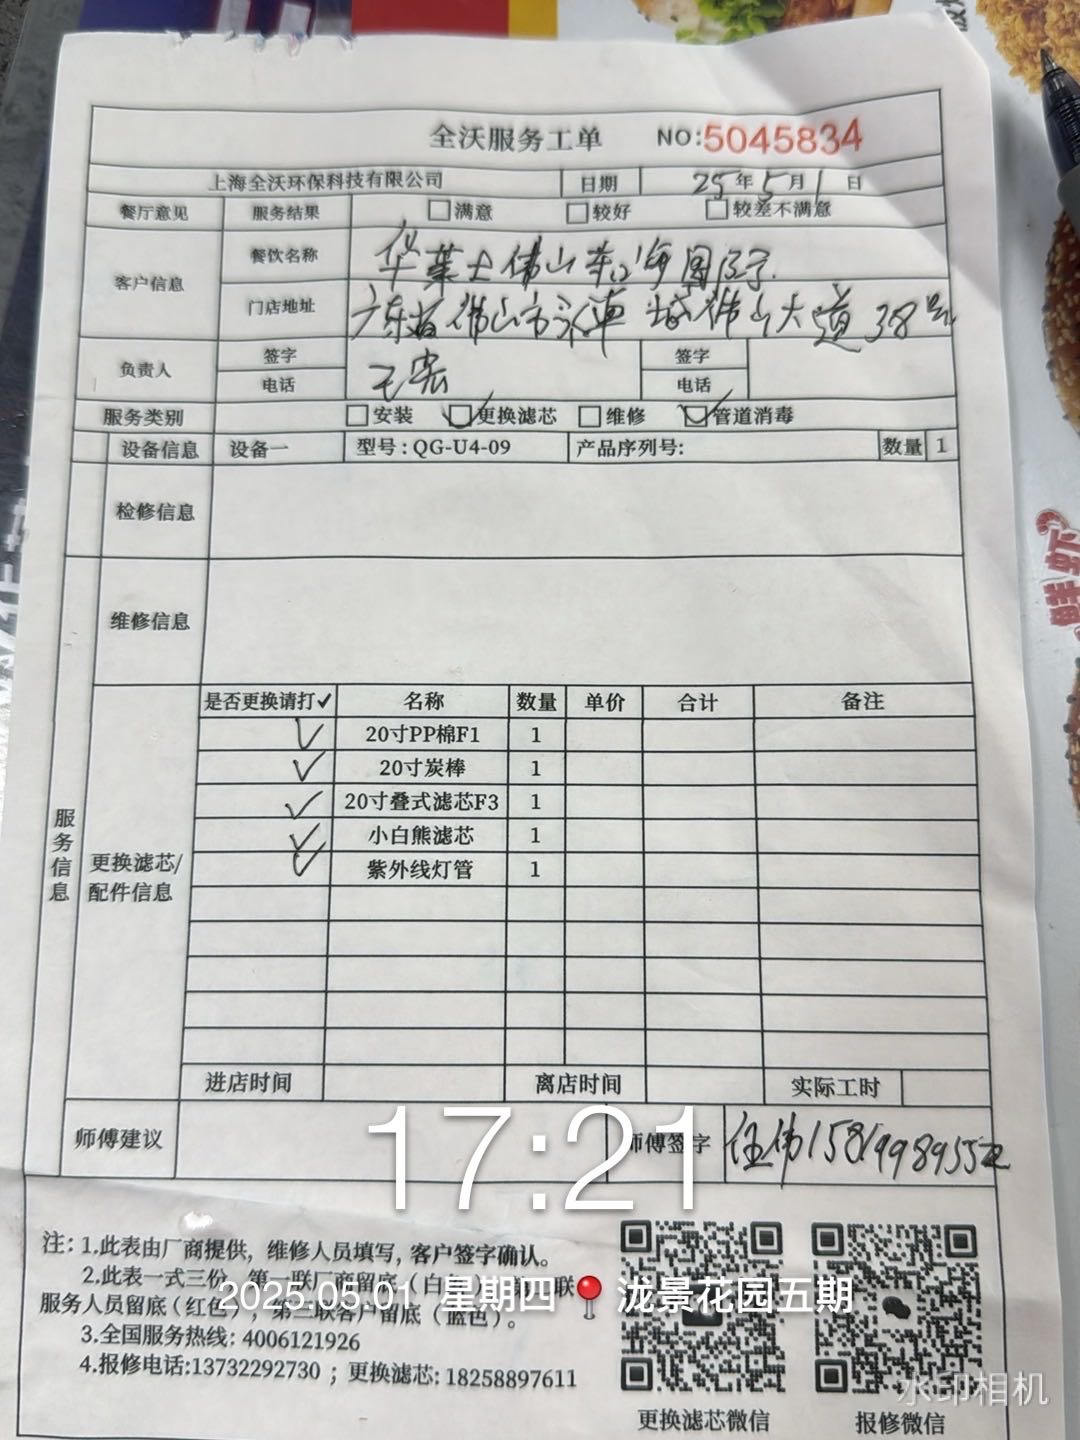 全沃服务工单 NO:5045834
上海全沃环保科技有限公司 日期 25年5月1日
餐厅意见 服务结果 □满意 □较好 □较差不满意
客户信息 餐饮名称 华莱士佛山
门店地址 广东省佛山市 城佛山大道38号
负责人 签字 王宏 签字
电话 电话
服务类别 □安装 ☑更换滤芯 □维修 ☑管道消毒
设备信息 设备一 型号:QG-U4-09 产品序列号: 数量 1
检修信息
维修信息
服务信息
更换滤芯/
配件信息
是否更换请打✓ 名称 数量 单价 合计 备注
✓ 20寸PP棉F1 1
✓ 20寸炭棒 1
✓ 20寸叠式滤芯F3 1
✓ 小白熊滤芯 1
✓ 紫外线灯管 1
进店时间 离店时间 实际工时
师傅建议 师傅签字 任伟
17:21
注:1.此表由厂商提供,维修人员填写,客户签字确认。
2.此表一式三份,第一联厂商留底(白
服务人员留底(红色),第三联客户留底(蓝色)。
2025.05.01 星期四 泷景花园五期
3.全国服务热线: 4006121926
4.报修电话:13732292730 ; 更换滤芯: 18258897611
更换滤芯微信 报修微信
水印相机
鲜虾